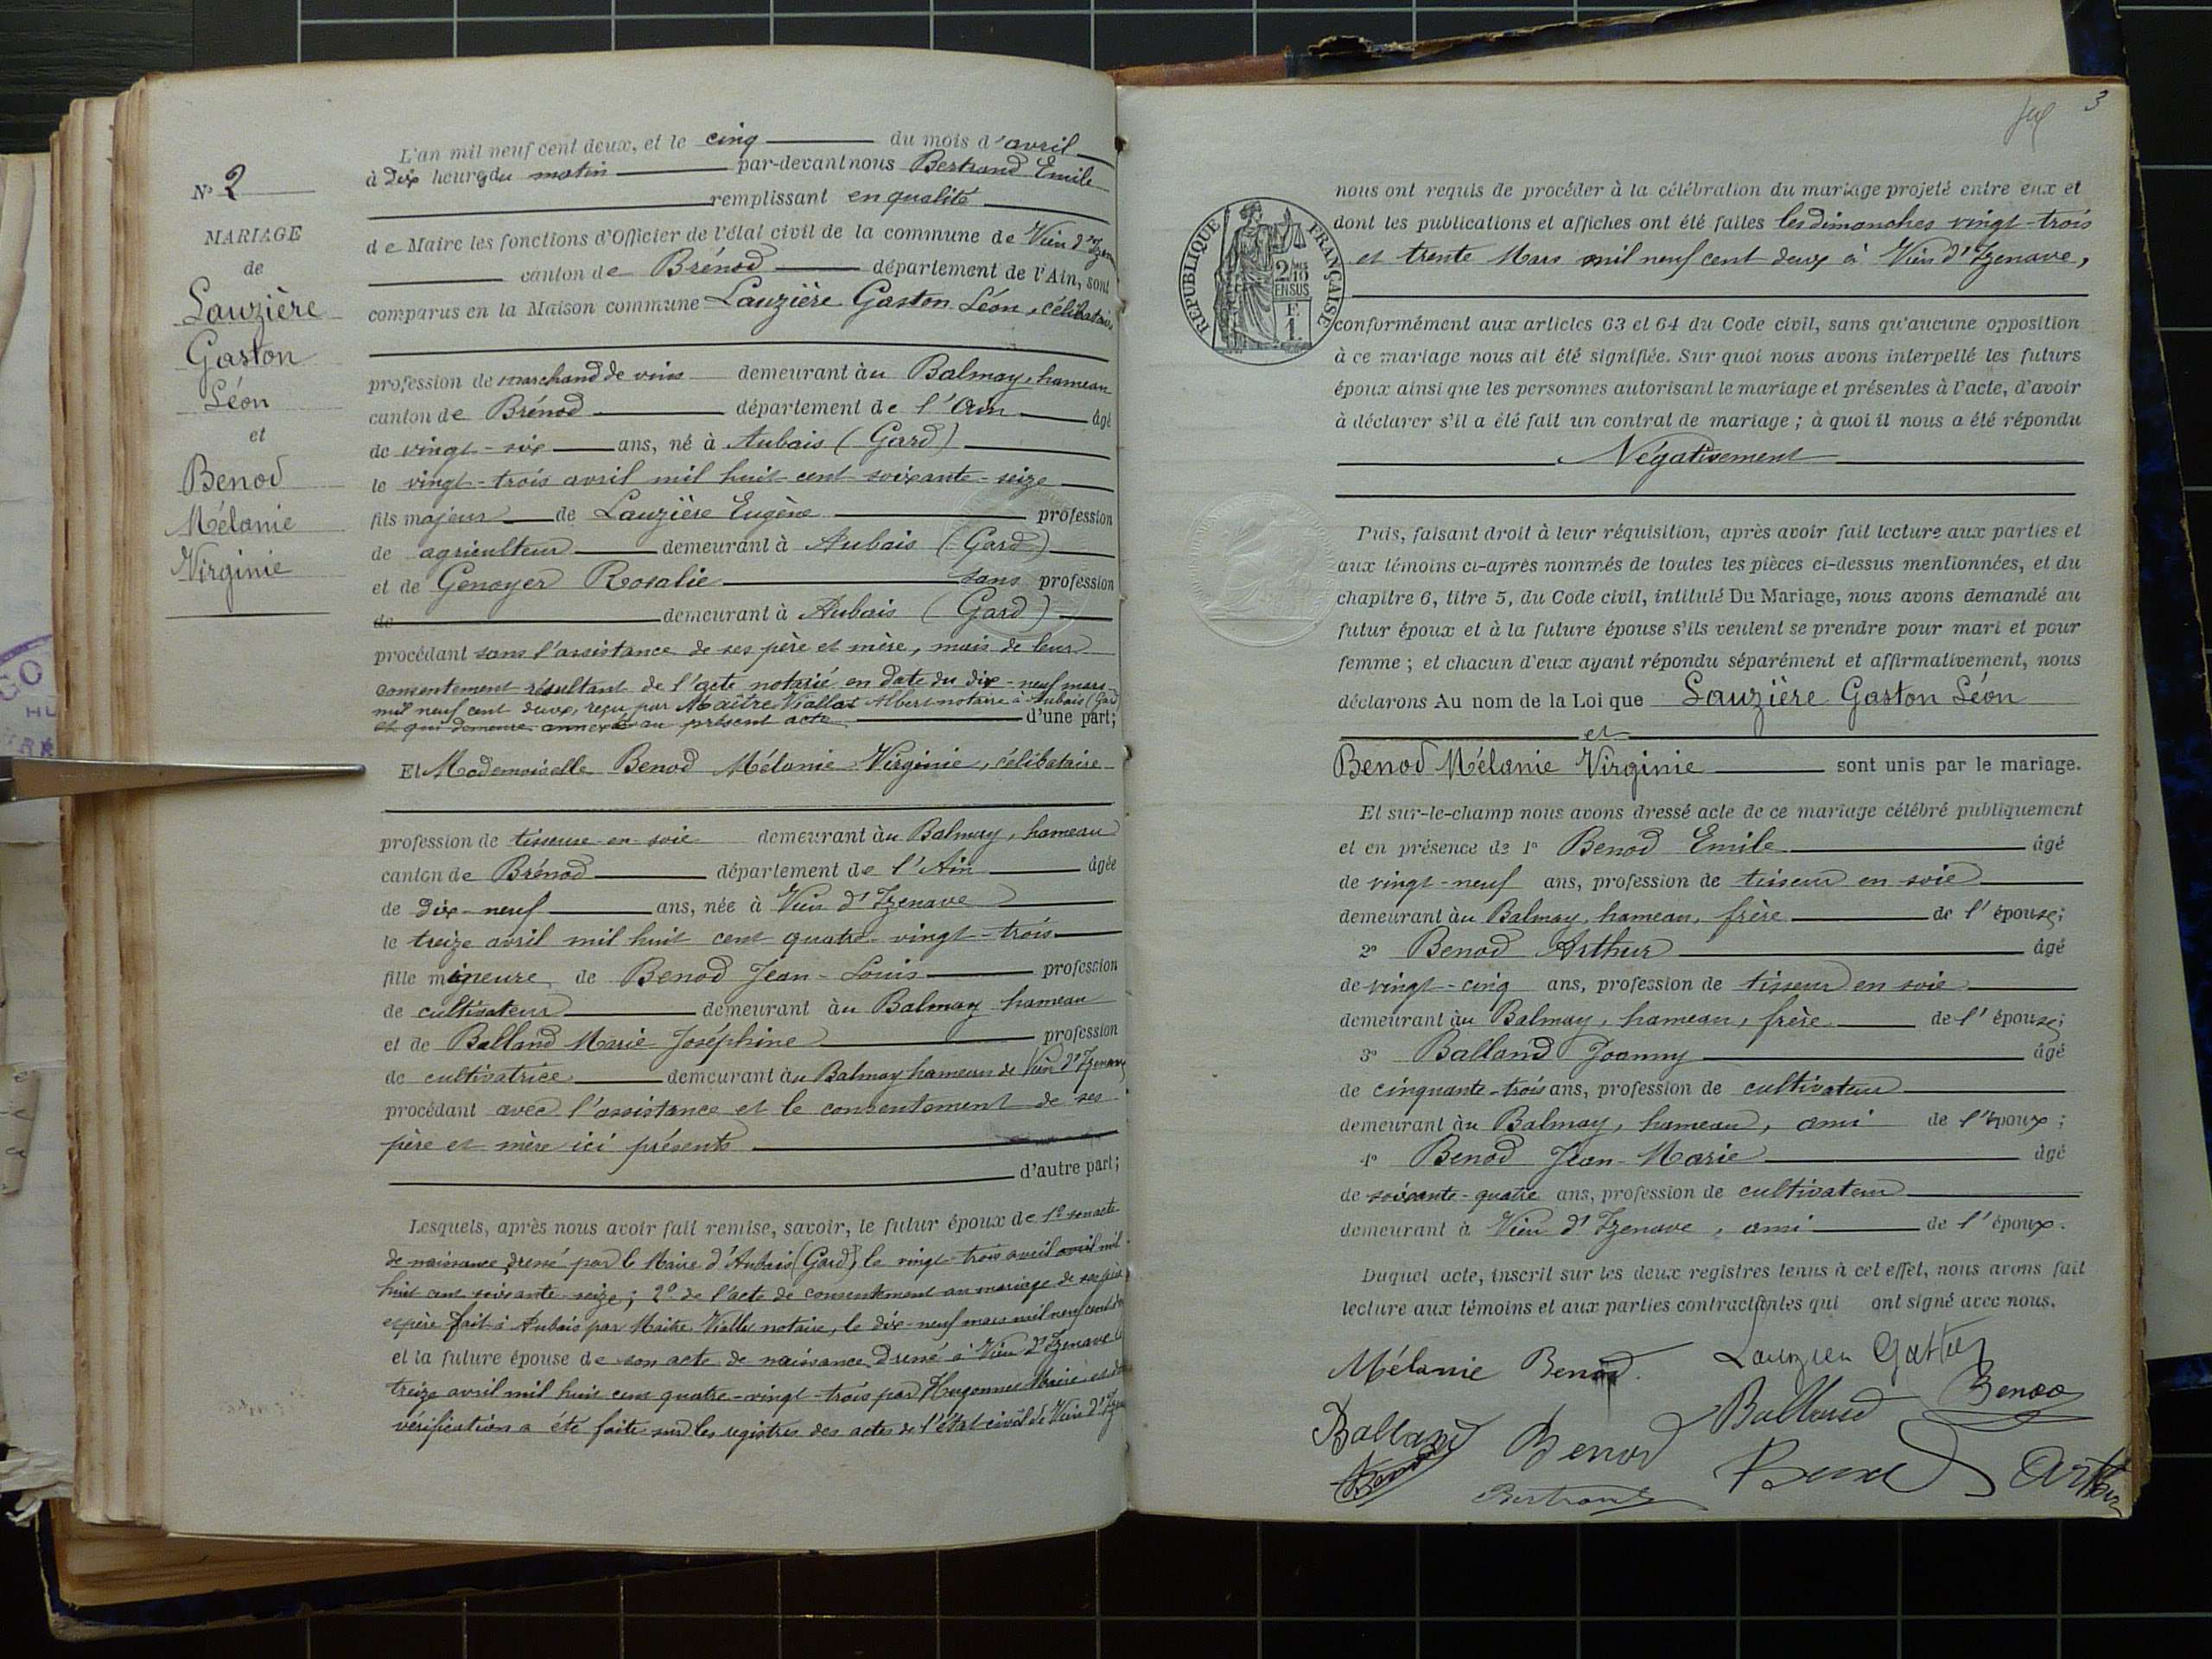 N° 2
MARIAGE
de
Lauzière
Gaston
Léon
et
Benod
Mélanie
Virginie
L'an mil neuf cent deux, et le cinq du mois d'avril
à dix heures du matin par-devant nous Bertrand Emile
remplissant en qualité
de Maire les fonctions d'Officier de l'état civil de la commune de Vieu d'Izenave
canton de Brénod département de l'Ain, sont
comparus en la Maison commune Lauzière Gaston Léon, célibataire
profession de marchand de vins demeurant àu Balmay, hameau
canton de Brénod département de l'Ain âgé
de vingt-six ans, né à Aubais (Gard)
le vingt-trois avril mil huit cent soixante-seize
fils majeur de Lauzière Eugène profession
de agriculteur demeurant à Aubais (Gard)
et de Genoyer Rosalie sans profession
de demeurant à Aubais (Gard)
procédant sans l'assistance de ses père et mère, mais de leur
consentement résultant de l'acte notarié en date du dix-neuf mars
mil neuf cent deux, reçu par Maître Viallat Albert notaire à Aubais (Gard)
et qui demeure annexé au présent acte d'une part;
Et Mademoiselle Benod Mélanie Virginie, célibataire
profession de tisseuse en soie demeurant àu Balmay, hameau
canton de Brénod département de l'Ain âgée
de dix-neuf ans, née à Vieu d'Izenave
le treize avril mil huit cent quatre-vingt-trois
fille mineure de Benod Jean-Louis profession
de cultivateur demeurant àu Balmay hameau
et de Balland Marie Joséphine profession
de cultivatrice demeurant àu Balmay hameau de Vieu d'Izenave
procédant avec l'assistance et le consentement de ses
père et mère ici présents
d'autre part;
Lesquels, après nous avoir fait remise, savoir, le futur époux de 1° son acte
de naissance dressé par le Maire d'Aubais (Gard) le vingt-trois avril avril mil
huit cent soixante-seize; 2° de l'acte de consentement au mariage de ses père
et père fait à Aubais par Maître notaire, le dix-neuf mars mil neuf cent deux
et la future épouse de son acte de naissance dressé à Vieu d'Izenave le
treize avril mil huit cent quatre-vingt-trois par Hugonnet Maire et dont
vérification a été faite sur les registres des actes de l'état civil de Vieu d'Izenave
3
RÉPUBLIQUE FRANÇAISE
2/10
EN SUS
F.
1.
nous ont requis de procéder à la célébration du mariage projeté entre eux et
dont les publications et affiches ont été faites les dimanches vingt-trois
et trente Mars mil neuf cent deux à Vieu d'Izenave,
conformément aux articles 63 et 64 du Code civil, sans qu'aucune opposition
à ce mariage nous ait été signifiée. Sur quoi nous avons interpellé les futurs
époux ainsi que les personnes autorisant le mariage et présentes à l'acte, d'avoir
à déclarer s'il a été fait un contrat de mariage; à quoi il nous a été répondu
Négativement
Puis, faisant droit à leur réquisition, après avoir fait lecture aux parties et
aux témoins ci-après nommés de toutes les pièces ci-dessus mentionnées, et du
chapitre 6, titre 5, du Code civil, intitulé Du Mariage, nous avons demandé au
futur époux et à la future épouse s'ils veulent se prendre pour mari et pour
femme; et chacun d'eux ayant répondu séparément et affirmativement, nous
déclarons Au nom de la Loi que Lauzière Gaston Léon
et
Benod Mélanie Virginie sont unis par le mariage.
Et sur-le-champ nous avons dressé acte de ce mariage célébré publiquement
et en présence de 1° Benod Emile âgé
de vingt-neuf ans, profession de tisseur en soie
demeurant àu Balmay, hameau, frère de l'épouse;
2° Benod Arthur âgé
de vingt-cinq ans, profession de tisseur en soie
demeurant àu Balmay, hameau, frère de l'épouse;
3° Balland Joanny âgé
de cinquante-trois ans, profession de cultivateur
demeurant àu Balmay, hameau, ami de l'époux;
4° Benod Jean-Marie âgé
de soixante-quatre ans, profession de cultivateur
demeurant à Vieu d'Izenave, ami de l'époux.
Duquel acte, inscrit sur les deux registres tenus à cet effet, nous avons fait
lecture aux témoins et aux parties contractantes qui ont signé avec nous.
Mélanie Benod Lauzière Gaston
Balland Benod Balland Benod
Benod Bertrand Benod Arthur